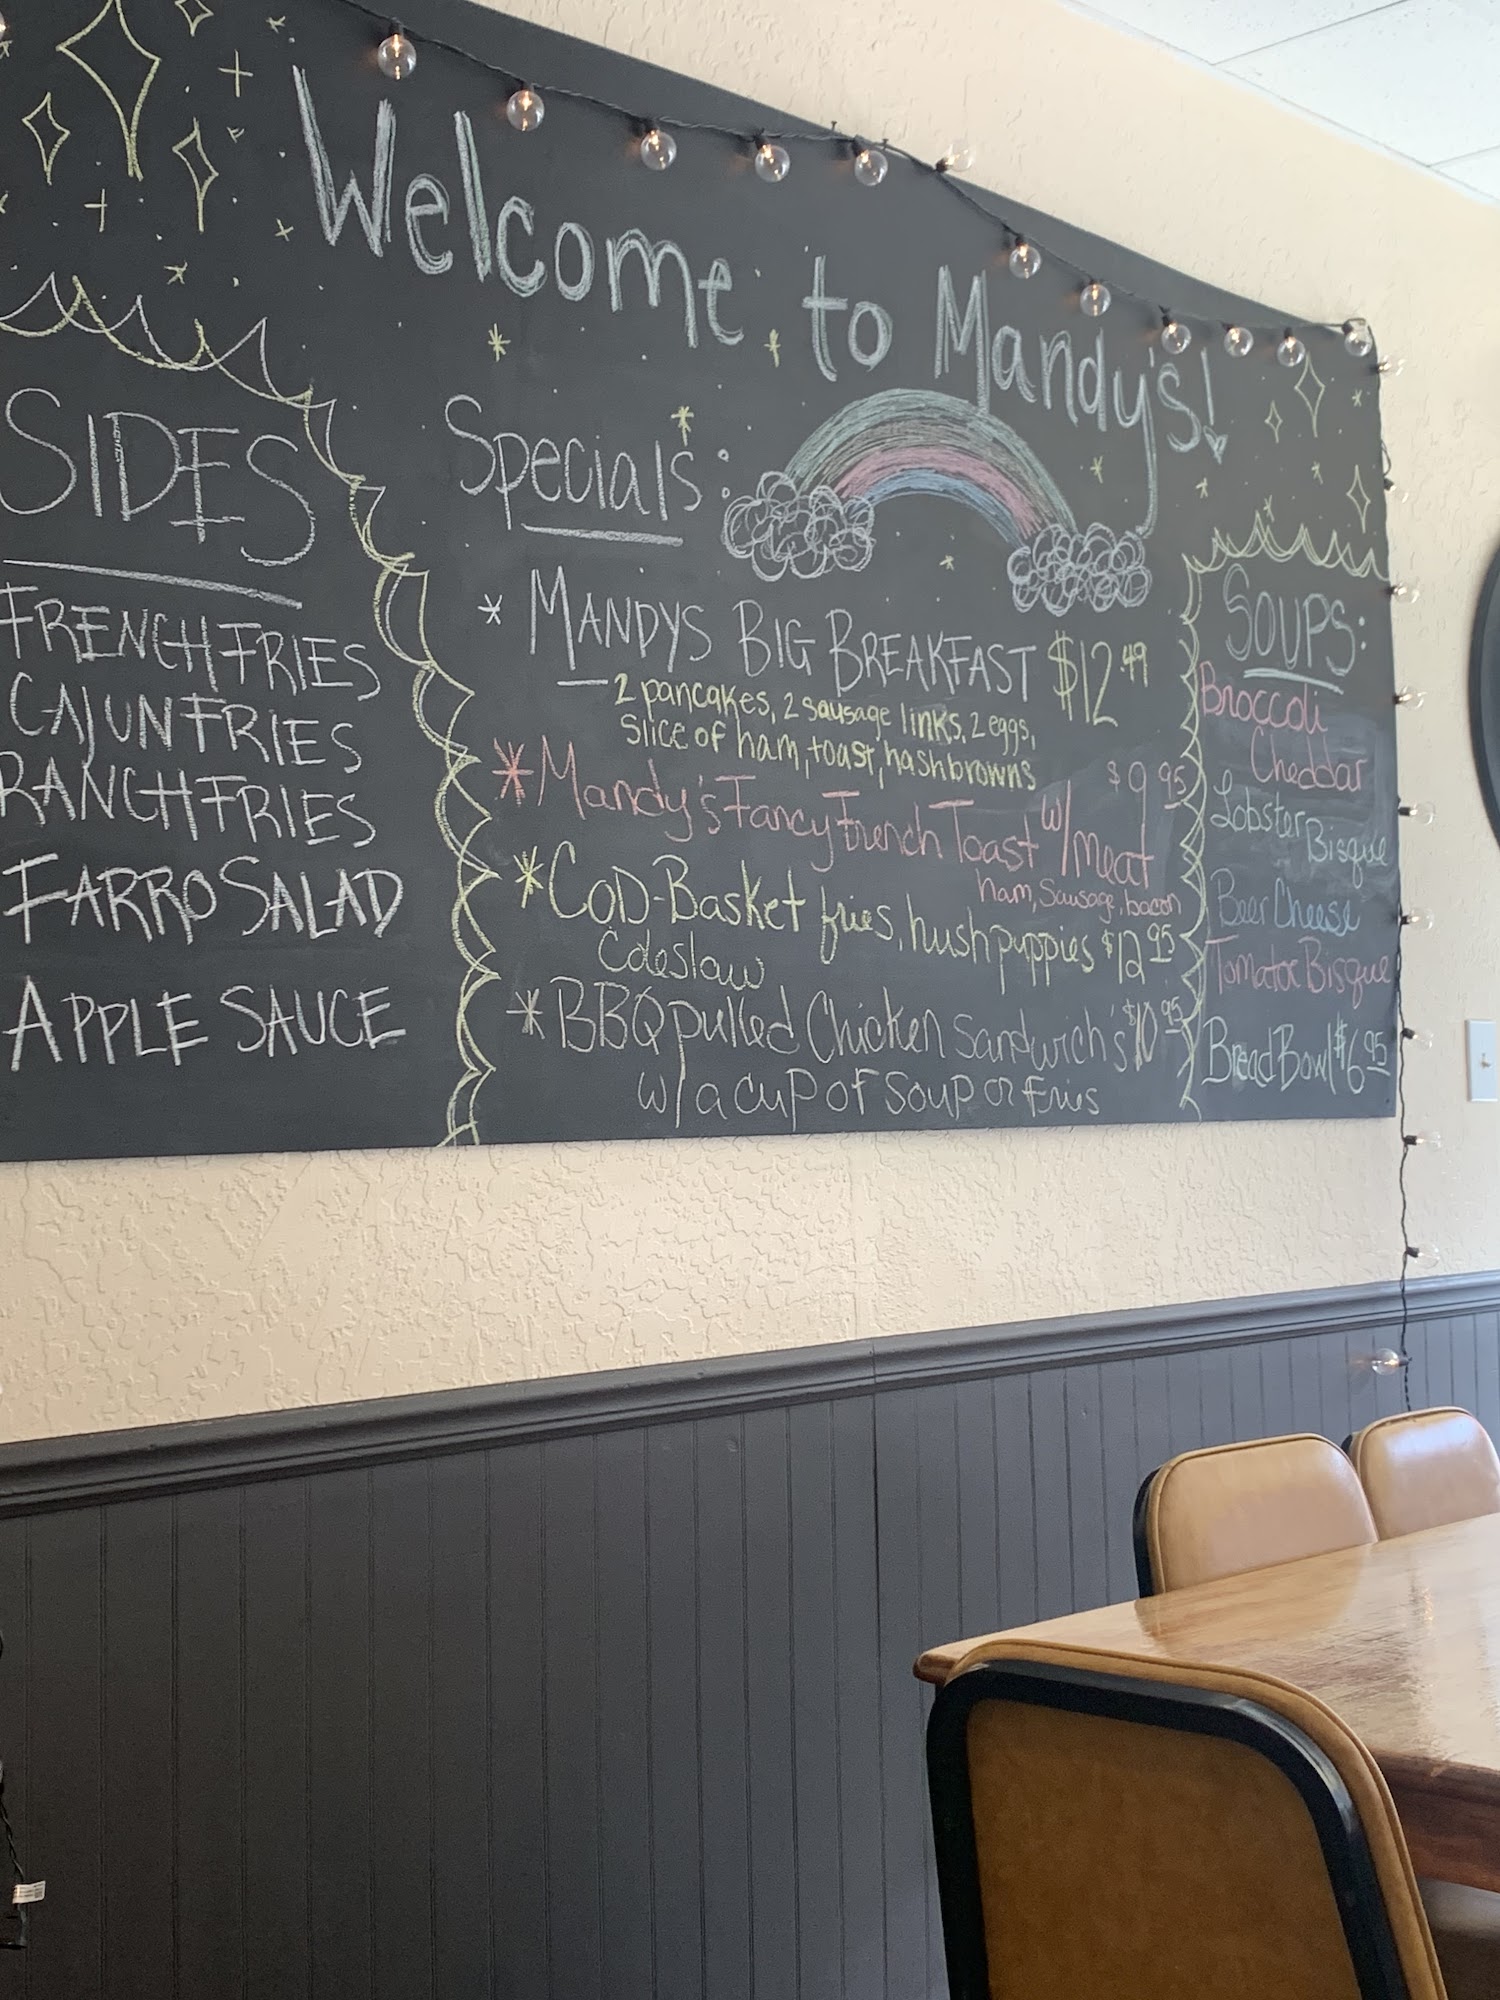 Welcome to Mandy's!
SIDES
FRENCH FRIES
CAJUN FRIES
RANCH FRIES
FARRO SALAD
APPLE SAUCE
Specials:
* MANDYS BIG BREAKFAST $12.49
2 pancakes, 2 sausage links, 2 eggs,
slice of ham, toast, hashbrowns
* Mandy's Fancy French Toast w/meat $9.95
ham, sausage, bacon
* COD-Basket fries, hushpuppies $12.95
Coleslaw
* BBQ pulled Chicken Sandwich's $10.95
w/ a cup of soup or fries
SOUPS:
Broccoli
Cheddar
Lobster Bisque
Beer Cheese
Tomatoe Bisque
Bread Bowl $6.95